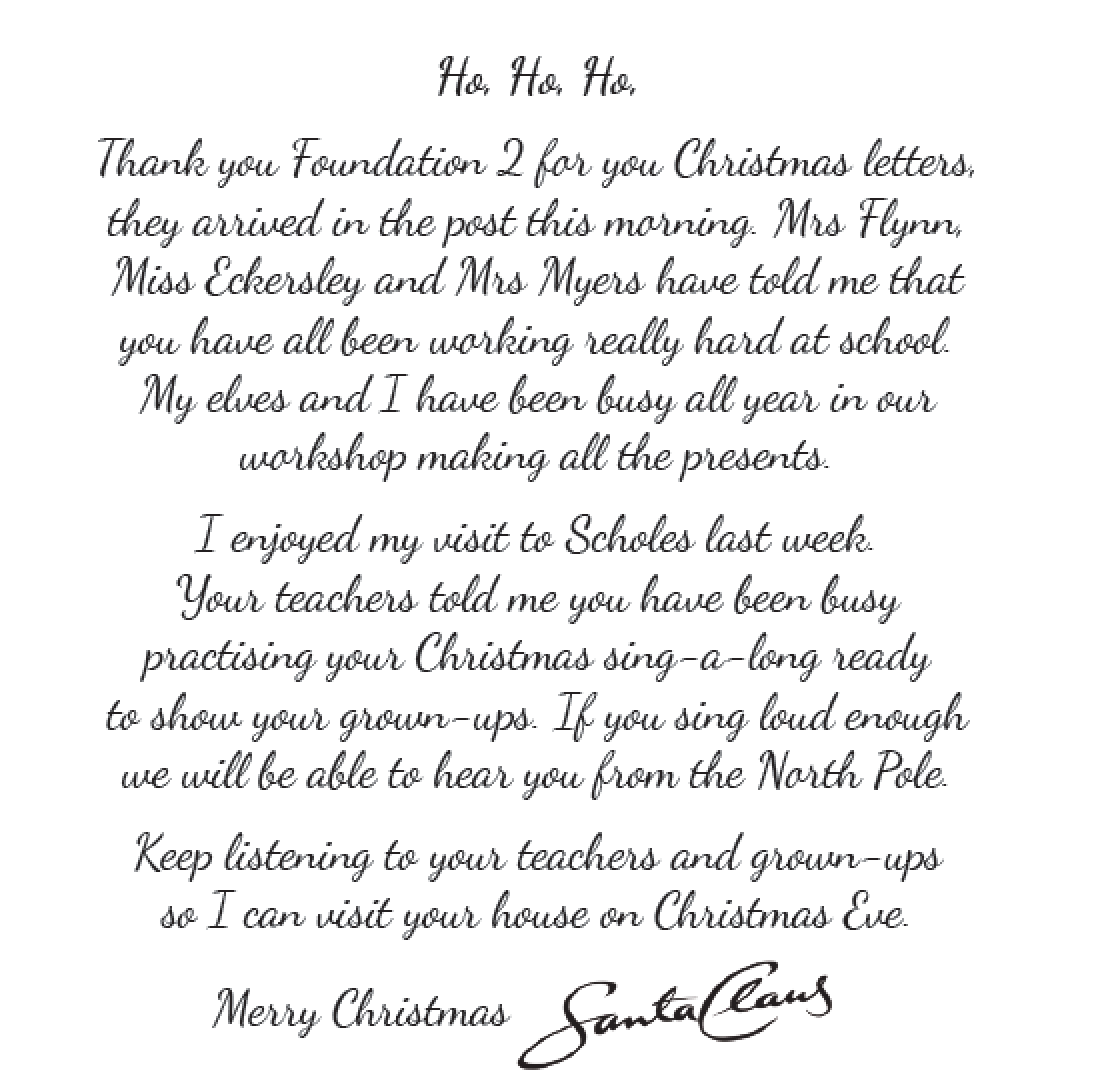 Ho, Ho, Ho,
Thank you Foundation 2 for you Christmas letters,
they arrived in the post this morning. Mrs Flynn,
Miss Eckersley and Mrs Myers have told me that
you have all been working really hard at school.
My elves and I have been busy all year in our
workshop making all the presents.
I enjoyed my visit to Scholes last week.
Your teachers told me you have been busy
practising your Christmas sing-a-long ready
to show your grown-ups. If you sing loud enough
we will be able to hear you from the North Pole.
Keep listening to your teachers and grown-ups
so I can visit your house on Christmas Eve.
Merry Christmas Santa Claus